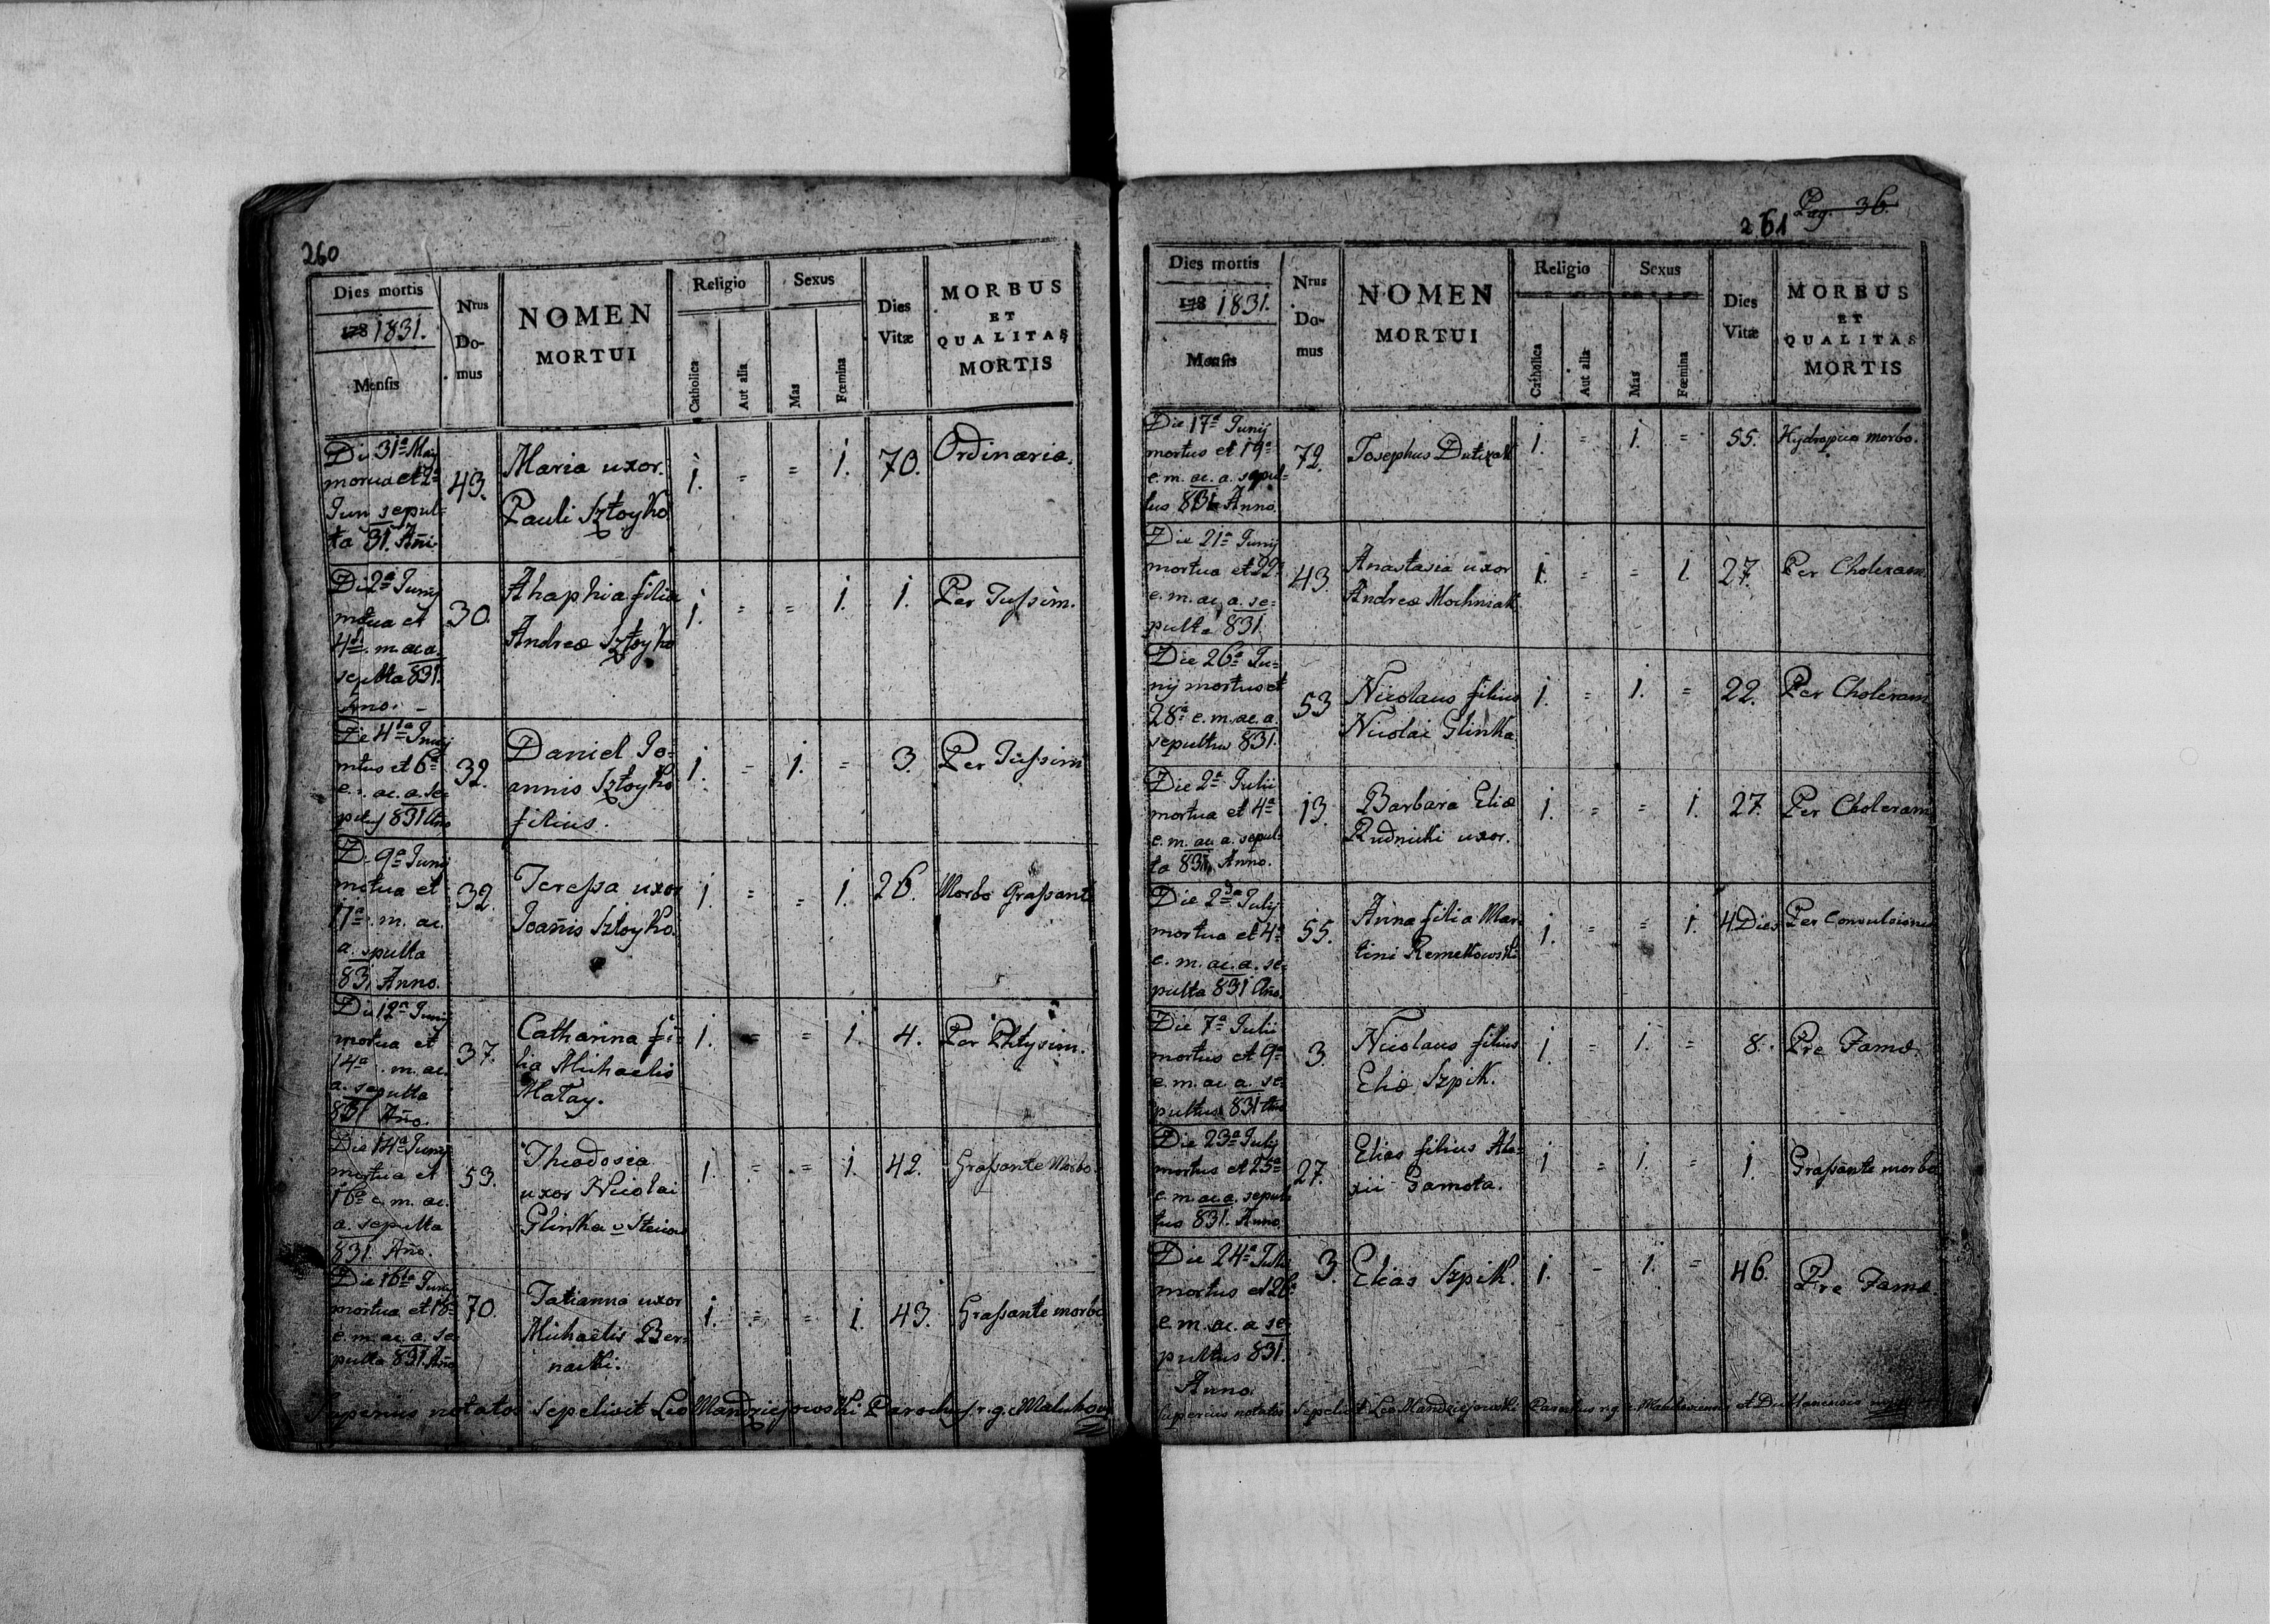 260
Dies mortis
178 1831.
Mensis
Nrus
Do-
mus
NOMEN
MORTUI
Religio
Catholica
Aut alia
Sexus
Mas
Fœmina
Dies
Vitæ
MORBUS
ET
QUALITAS
MORTIS
Di 31a May
mortua et 2a
Jun sepul-
ta 31. Añi
43.
Maria uxor
Pauli Sztoyko
1. = = 1. 70.
Ordinaria.
Di 2a Junij
mtua et
4ta . m. ac a.
sepulta 831.
Anno. -
30.
Ahaphia filia
Andreæ Sztoyko
1. = = 1. 1.
Per Tussim.
Die 4ta Junij
mtus et 6ta
e. . ac. a. se-
831 Ano
32.
Daniel Jo-
annis Sztoyko
filius.
1. = 1. = 3.
Per Tussim
D. 9a Junij
mtua et
11a . m. ac.
a. spulta
831 Anno.
32.
Teressa uxor
Joañis Sztoyko.
1. = = 1. 26.
Morbo Grassante
Die 12a Junij
mortua et
14a . m. ac.
a. sepulta
831 Año.
37.
Catharina fi-
lia Michaelis
Matay.
1. = = 1. 4.
Per Phtysim.
Die 14a Junij
mortua et
16a e. m. ac.
a. sepulta
831. Año.
53.
Theodosia
uxor Nicolai
Glinka
1. = = 1. 42.
Grassante Morbo.
Die 16ta Junij
mortua et 18a
e. m. ac. a. se-
pulta 831. Año
70.
Tatianna uxor
Michaelis Ber-
nacki.
1. = = 1. 43.
Grassante morbo
Superius notatos sepelivit Leo Mandziejowski Parochus r. g. c Maluhow
Pag. 36.
261
Dies mortis
178 1831.
Mensis
Nrus
Do-
mus
NOMEN
MORTUI
Religio
Catholica
Aut alia
Sexus
Mas
Fœmina
Dies
Vitæ
MORBUS
ET
QUALITAS
MORTIS
Die 17a Junij
mortus et 19a
e. m. ac. a. sepul-
tus 831 Anno.
72.
Josephus
1. = 1. = 55.
Hydropica morbo.
Die 21a Junij
mortua et 22a
e. m. ac. a. se-
pulta 831
43.
Anastasia uxor
Andreæ Mochniak
1. = = 1. 27.
Per Choleram
Die 26a Ju-
nij mortus et
28a e. m. ac. a.
sepultus 831.
53
Nicolaus filius
Nicolai Glinka.
1. = 1. = 22.
Per Choleram
Die 2a Julii
mortua et 4a
e. m. ac. a. sepul-
ta 831, Anno.
13.
Barbara Eliæ
Rudnicki uxor.
1. = = 1. 27.
Per Choleram
Die 2da July
mortua et 4a
e. m. ac. a. se-
pulta 831 Año.
55.
Anna filia Mar-
tini Remetkowski
1. = = 1. 4 Dies
Per Convulsione
Die 7a Julii
mortus et 9a
e. m. ac a. se-
pultus 831
3.
Nicolaus filius
Eliæ Szpik.
1. = 1. = 8.
Pre Fame.
Die 23a July
mortus et 25a
e. m. ac. a. sepul-
tus 831. Anno
27.
Elias filius Ale-
xii Gamota.
1 = 1. = 1.
Grassante morbo
Die 24a Julii
mortus et 26a
e. m. ac. a se-
pultus 831.
Anno.
3.
Elias Szpik.
1. = 1. = 46.
Pre Fame.
Superius notatos sepelivit Leo Mandziejowski Parochus r. g. c. Maluhoviensis et